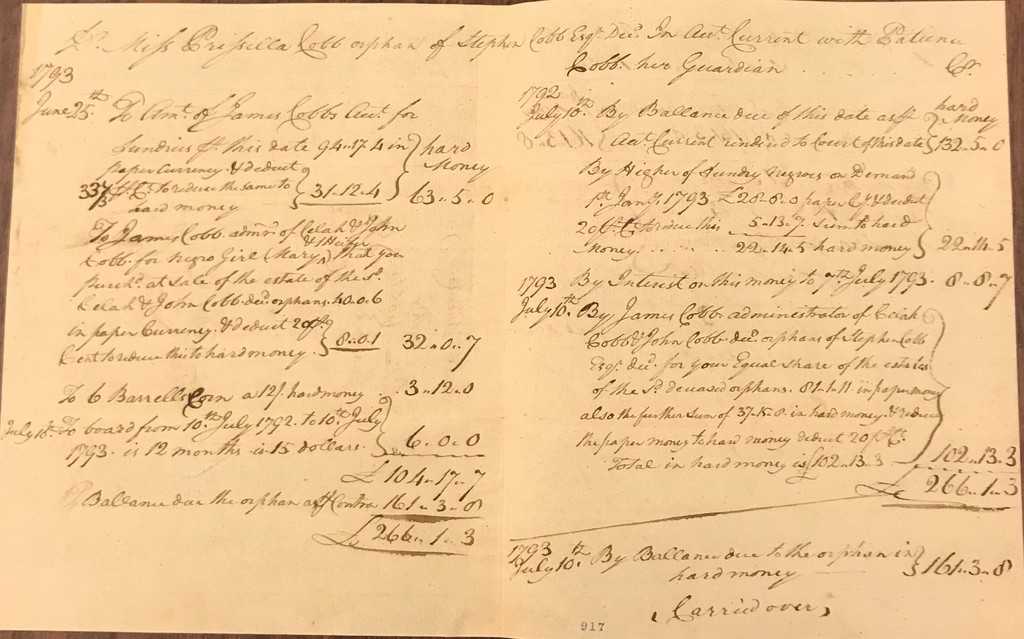 Dr. Miss Prissilla Cobb orphan of Stephen Cobb Esqr. Decd. In Acct. Current with Patience
Cobb her Guardian . . . . Cr.
1793
June 25th To Amt. of James Cobbs Acct. for
Sundries pr. this date 94..17..4 in
paper Currency & deduct
33 1/3 pr Ct. to reduce the same to
hard money
31..12..4
hard
Money
63..5..0
To James Cobb admr. of Celah & John
& Heifer
Cobb for negro Girl (Mary) that you
purchd. at Sale of the estate of the Sd.
Celah & John Cobb Decd. orphans 40..0..6
in paper Currency & deduct 20 pr.
Cent to reduce this to hard money
8..0..1 32..0..7
To 6 Barrells Corn a 12/. hard money . 3..12..0
July 10th. To board from 10th. July 1792 to 10th July
1793 is 12 months is 15 dollars. 6..0..0
£ 104..17..7
Ballance due the orphan as pr Contra 161..3..8
£ 266..1..3
1792
July 10th. By Ballance due of this date as pr
Acct. Current rendred to Court of this date
hard
Money
132..5..0
By Higher of Sundry Negroes on Demand
1st Jany. 1793 £28..8..0 paper Cy. & deduct
20 pr Ct. to reduce this 5..13..7 Sum to hard
Money . . . . . 22..14..5 hard money 22..14..5
1793 By Interest on this money to 9th July 1793. 8..8..7
July 10th. By James Cobb administrator of Celah
Cobb & John Cobb Decd. orphans of Stephen Cobb
Esqr. Decd. for your Equal share of the estates
of the Sd. Deceased orphans. 81..1..11 in paper money
also the further Sum of 37..15..8. in hard money. & to reduce
the paper money to hard money deduct 20 pr Ct.
Total in hard money is £102..13..3 102..13..3
£ 266..1..3
1793
July 10th. By Ballance due to the orphan in
hard money
161..3..8
(Carried over)
917